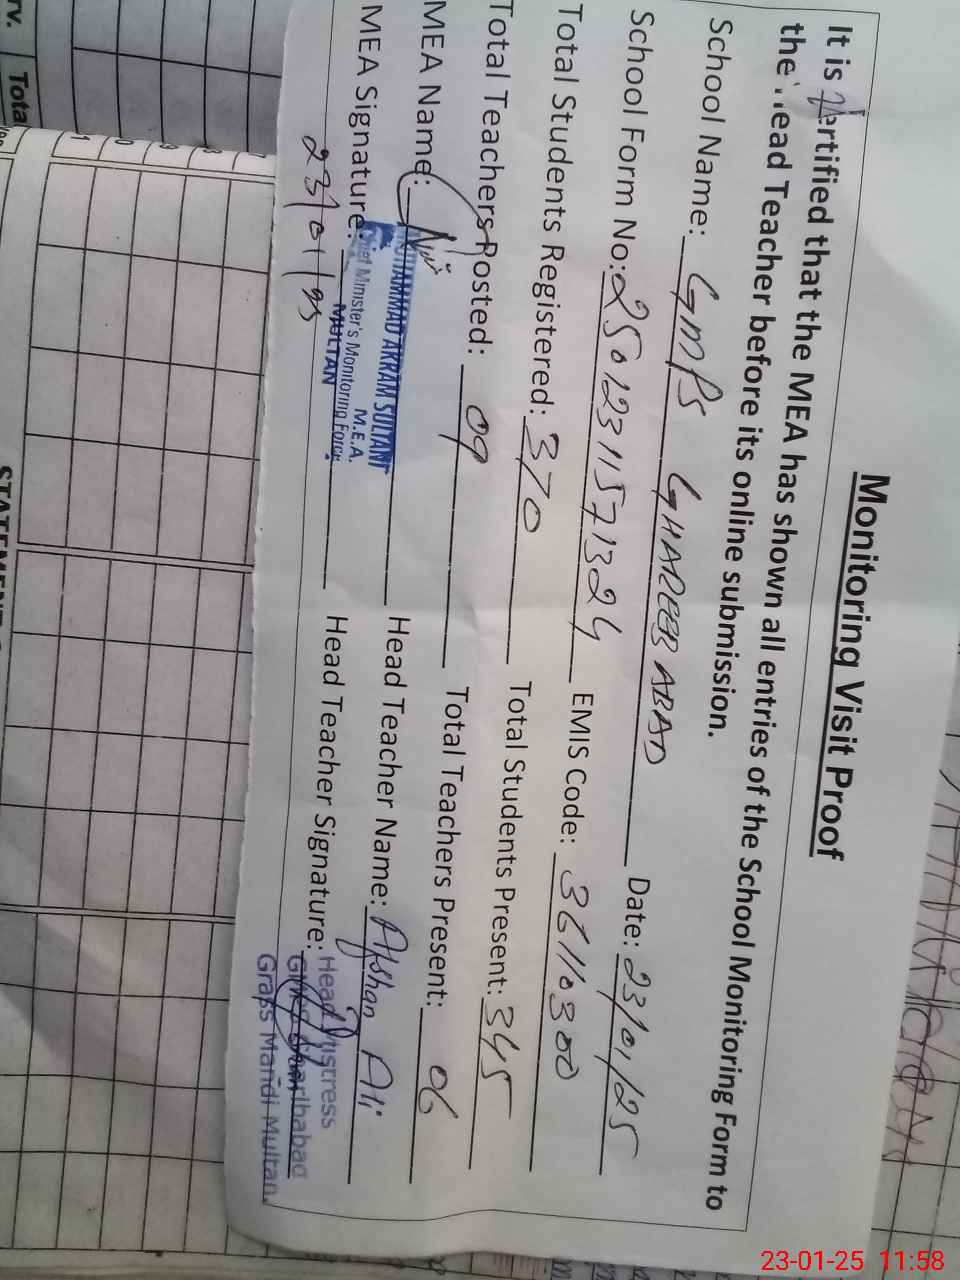 Monitoring Visit Proof
It is certified that the MEA has shown all entries of the School Monitoring Form to
the Head Teacher before its online submission.
School Name: GMPS GHAREEB ABAD Date: 23/01/25
School Form No: 25012311571324 EMIS Code: 36110300
Total Students Registered: 370 Total Students Present: 345
Total Teachers Posted: 09 Total Teachers Present: 06
MEA Name: MUHAMMAD AKRAM SULTANI Head Teacher Name: Afshan Ali
M.E.A.
Chief Minister's Monitoring Force
MEA Signature: MULTAN Head Teacher Signature: Head Mistress
23/01/25
Gharibabad
Grass Mandi Multan.
rv. Tota
STATEMENT
23-01-25 11:58